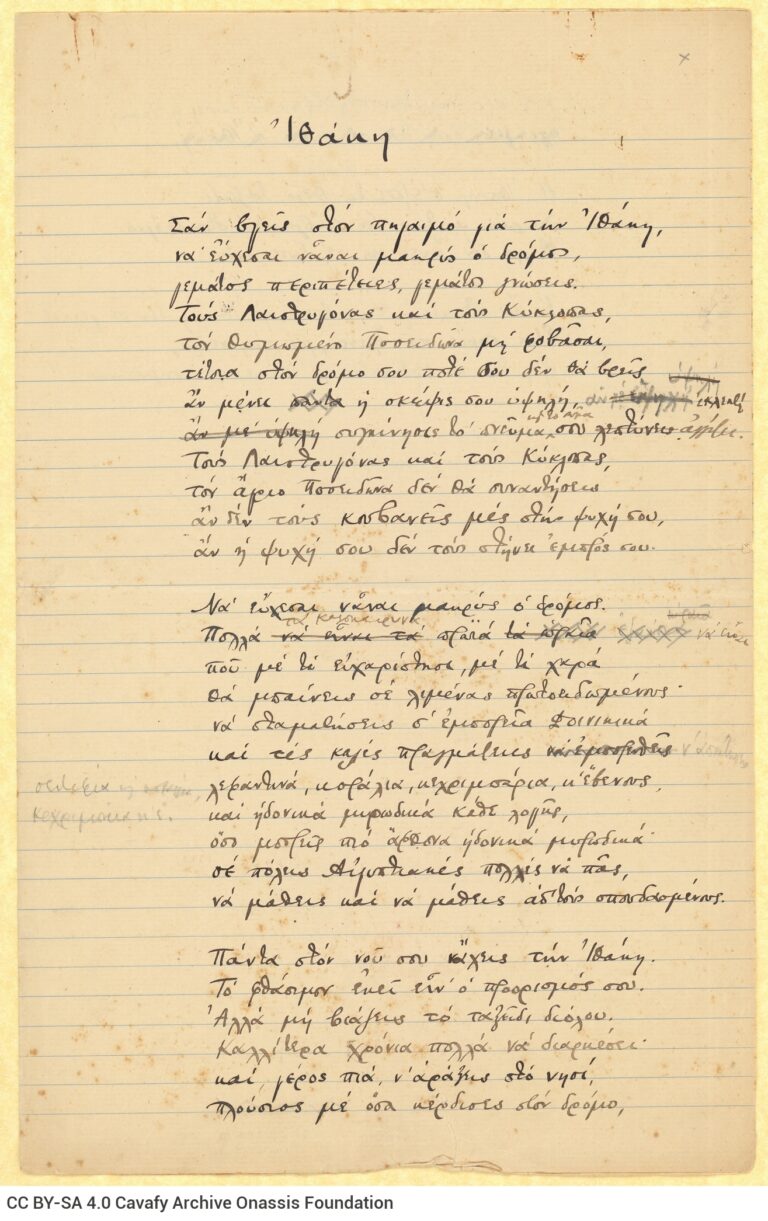 Ἰθάκη
Σάν βγεῖς στόν πηγαιμό γιά τήν Ἰθάκη,
νά εὔχεσαι νἆναι μακρύς ὁ δρόμος,
γεμάτος περιπέτειες, γεμάτος γνώσεις.
Τούς Λαιστρυγόνας καί τούς Κύκλωπας,
τόν θυμωμένο Ποσειδῶνα μή φοβᾶσαι,
τέτοια στόν δρόμο σου ποτέ σου δέν θά βρεῖς
ὑψηλή
ἄν μένει πάντα ἡ σκέψις σου ὑψηλή, ἄν ἐκλεκτή
ἄν μέ ὑψηλή συγκίνησις τό πνεῦμα σου λεπτύνεις ἀγγίζει.
Τούς Λαιστρυγόνας καί τούς Κύκλωπας,
τόν ἄγριο Ποσειδῶνα δέν θά συναντήσεις
ἄν δέν τούς κουβανεῖς μές στήν ψυχή σου,
ἄν ἡ ψυχή σου δέν τούς στήνει ἐμπρός σου.
Νά εὔχεσαι νἆναι μακρύς ὁ δρόμος.
τά καλοκαιρινά
Πολλά νά εἶναι τά πρωϊά νά εἶναι
πού μέ τί εὐχαρίστησι, μέ τί χαρά
θά μπαίνεις σέ λιμένας πρωτοειδωμένους·
νά σταματήσεις σ' ἐμπορεῖα Φοινικικά
καί τές καλές πραγμάτειες ν' ἀποκτήσεις
σεντέφια
κεχριμπάρια κ' ἔ.
λεφαντινά, κοράλια, κεχριμπάρια, κ' ἔβενους,
καί ἡδονικά μυρωδικά κάθε λογῆς,
ὅσο μπορεῖς πιό ἄφθονα ἡδονικά μυρωδικά·
σέ πόλεις Αἰγυπτιακές πολλές νά πᾶς,
νά μάθεις καί νά μάθεις ἀπ' τούς σπουδασμένους.
Πάντα στόν νοῦ σου νἄχεις τήν Ἰθάκη.
Τό φθάσιμον ἐκεῖ εἶν' ὁ προορισμός σου.
Ἀλλά μή βιάζεις τό ταξεῖδι διόλου.
Καλλίτερα χρόνια πολλά νά διαρκέσει·
καί, γέρος πιά, ν' ἀράξεις στό νησί,
πλούσιος μέ ὅσα κέρδισες στόν δρόμο,
CC BY-SA 4.0 Cavafy Archive Onassis Foundation